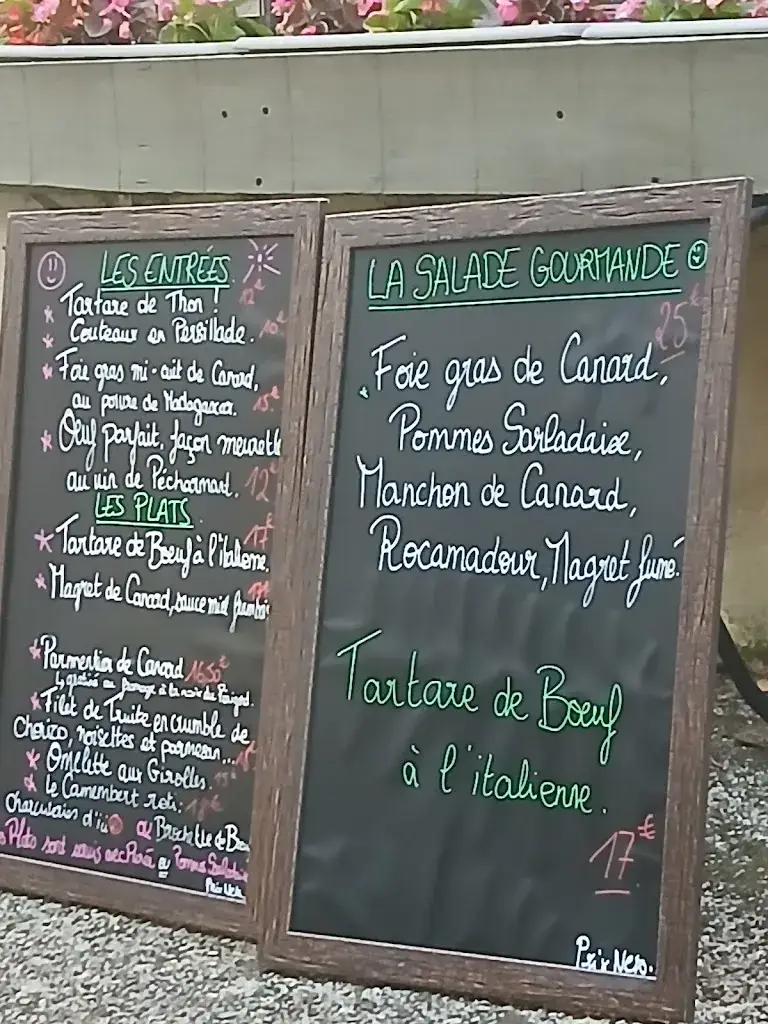 LES ENTRÉES
Tartare de Thon ! 12€
Couteaux en Persillade. 10€
Foie gras mi-cuit de Canard,
au poivre de Madagascar. 15€
Œuf parfait, façon meurette
au vin de Pécharmant. 12€
LES PLATS
Tartare de Bœuf à l'italienne. 17€
Magret de Canard, sauce miel
Parmentier de Canard 16.50€
Filet de Truite en crumble de
Chorizo, noisettes et parmesan...
Omelette aux Girolles.
le Camembert roti:
charcuteries d'ici ou Brochette de
Plats sont servis avec ou Pommes
Prix Nets
LA SALADE GOURMANDE
25€
Foie gras de Canard,
Pommes Sarladaise,
Manchon de Canard,
Rocamadour, Magret fumé.
Tartare de Bœuf
à l'italienne.
17€
Prix Nets.